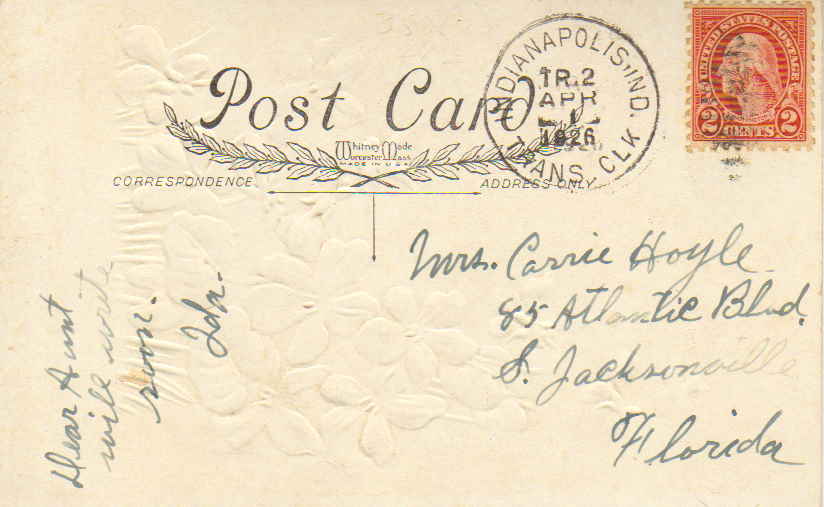 Post Card
Whitney Made
Worcester Mass
MADE IN U.S.A.
CORRESPONDENCE
ADDRESS ONLY
INDIANAPOLIS, IND.
TR.2
APR
1
1926
TRANS. CLK
UNITED STATES POSTAGE
2 CENTS 2
Mrs. Carrie Hoyle
85 Atlantic Blvd.
S. Jacksonville
Florida
Dear Aunt
will write
soon.